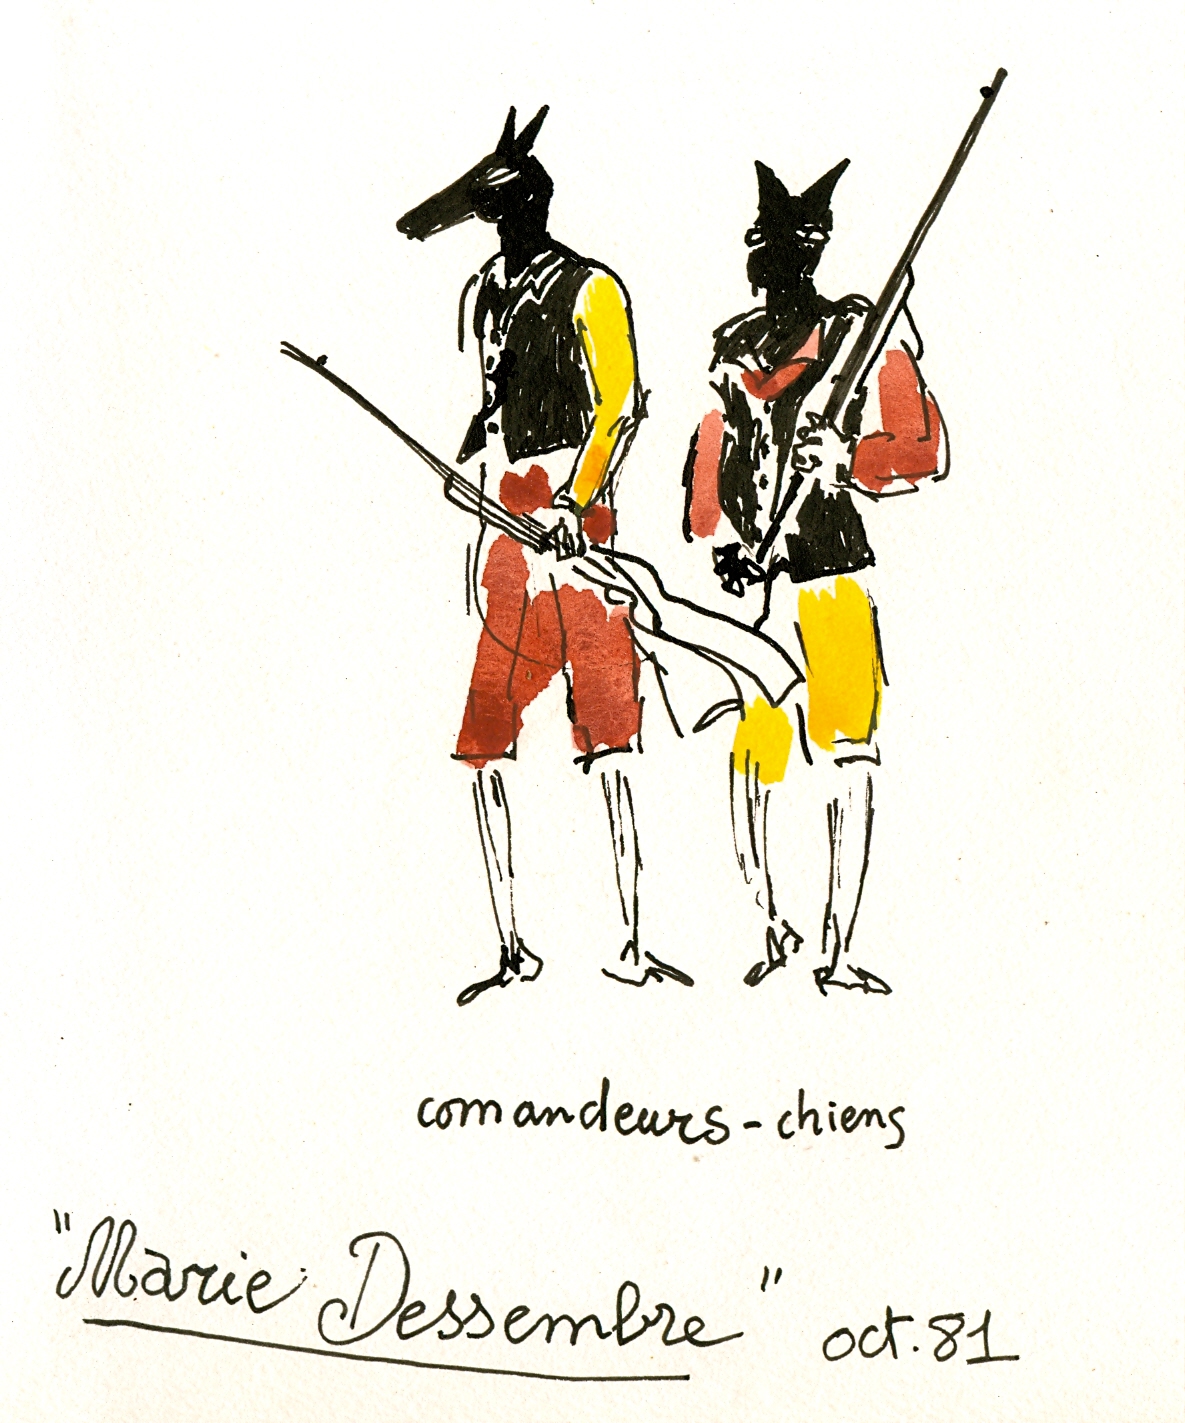 comandeurs-chiens
"Marie Dessembre" oct.81